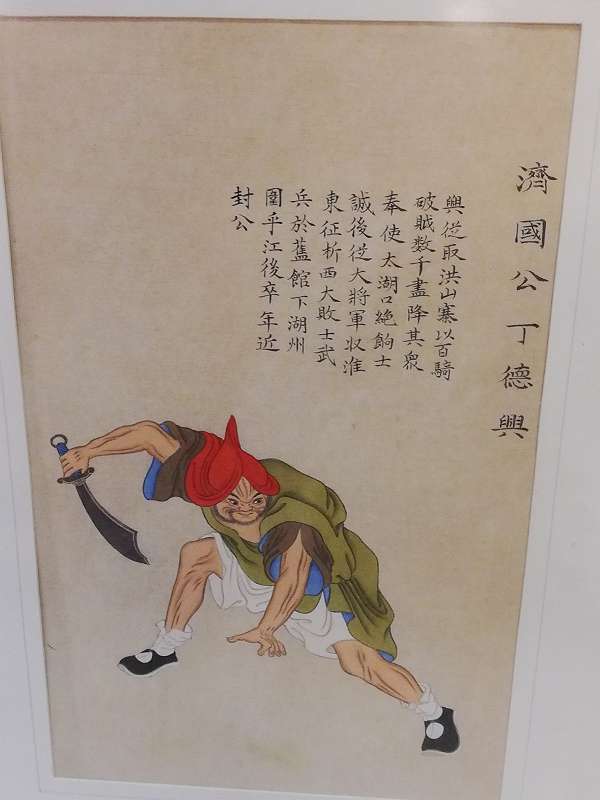 濟國公丁德興
興從取洪山寨以百騎
破賊数千盡降其衆
奉使太湖口絶餉士
誠後從大將軍収淮
東征析西大敗士武
兵於舊館下湖州
圍乎江後卒年近
封公